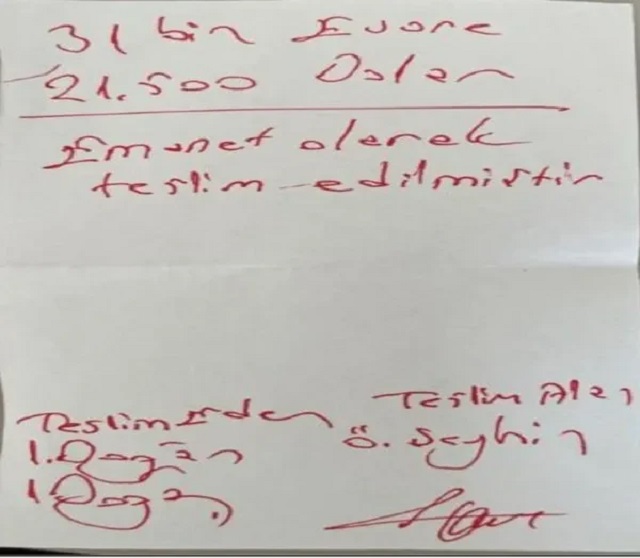 31 bin Euore
21.500 Dolar
Emanet olarak
teslim edilmiştir
Teslim Eden
Teslim Alan
I. Doğan
Ö. Seyhin
I Doğan